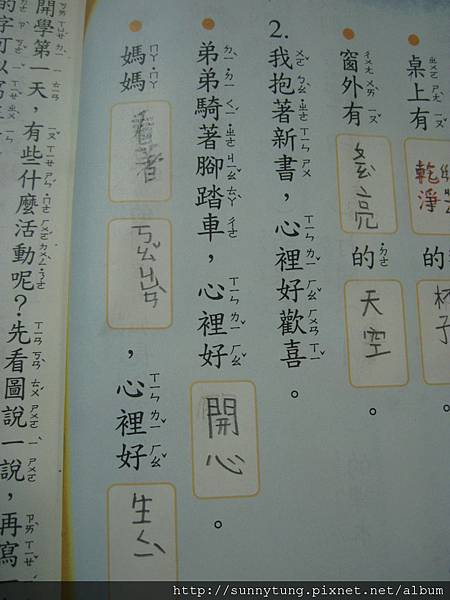 桌上有乾淨的杯子
窗外有亮的天空。
2.我抱著新書，心裡好歡喜。
弟弟騎著腳踏車，心裡好開心。
媽媽看著，心裡好生ㄑㄧ
開學第一天，有些什麼活動呢？先看圖說一說，再寫一
的字可以寫
http://sunnytung.pixnet.net/album